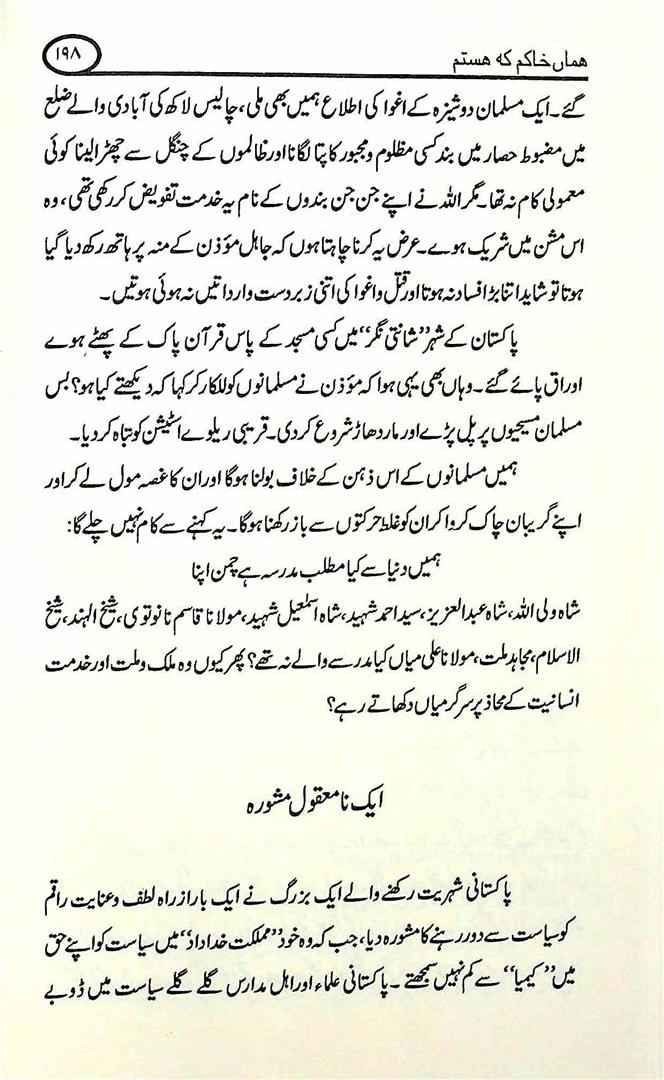 ھماں خاکم کہ ھستم
۱۹۸
گئے۔ ایک مسلمان دوشیزہ کے اغوا کی اطلاع ہمیں بھی ملی، چالیس لاکھ کی آبادی والے ضلع
میں مضبوط حصار میں بند کسی مظلوم و مجبور کا پتا لگانا اور ظالموں کے چنگل سے چھڑا لینا کوئی
معمولی کام نہ تھا۔ مگر اللہ نے اپنے جن جن بندوں کے نام یہ خدمت تفویض کر رکھی تھی، وہ
اس مشن میں شریک ہوے۔ عرض یہ کرنا چاہتا ہوں کہ جاہل مؤذن کے منہ پر ہاتھ رکھ دیا گیا
ہوتا تو شاید اتنا بڑا فساد نہ ہوتا اور قتل و اغوا کی اتنی زبردست وارداتیں نہ ہوئی ہوتیں۔
پاکستان کے شہر ”شانتی نگر“ میں کسی مسجد کے پاس قرآن پاک کے پھٹے ہوے
اوراق پائے گئے۔ وہاں بھی یہی ہوا کہ مؤذن نے مسلمانوں کو للکار کر کہا کہ دیکھتے کیا ہو؟ بس
مسلمان مسیحیوں پر پل پڑے اور مار دھاڑ شروع کر دی۔ قریبی ریلوے اسٹیشن کو تباہ کر دیا۔
ہمیں مسلمانوں کے اس ذہن کے خلاف بولنا ہوگا اور ان کا غصہ مول لے کر اور
اپنے گریبان چاک کروا کر ان کو غلط حرکتوں سے باز رکھنا ہوگا۔ یہ کہنے سے کام نہیں چلے گا:
ہمیں دنیا سے کیا مطلب مدرسہ ہے چمن اپنا
شاہ ولی اللہ، شاہ عبدالعزیز، سید احمد شہید، شاہ اسمٰعیل شہید، مولانا قاسم نانوتوی، شیخ الہند، شیخ
الاسلام، مجاہد ملت، مولانا علی میاں کیا مدرسے والے نہ تھے؟ پھر کیوں وہ ملک و ملت اور خدمت
انسانیت کے محاذ پر سرگرمیاں دکھاتے رہے؟
ایک نامعقول مشورہ
پاکستانی شہریت رکھنے والے ایک بزرگ نے ایک بار از راہ لطف و عنایت راقم
کو سیاست سے دور رہنے کا مشورہ دیا، جب کہ وہ خود ”مملکت خداداد“ میں سیاست کو اپنے حق
میں ”کیمیا“ سے کم نہیں سمجھتے۔ پاکستانی علماء اور اہل مدارس گلے گلے سیاست میں ڈوبے